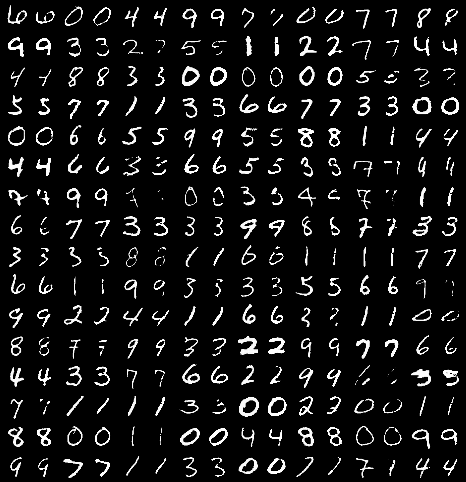 6 6 0 0 4 4 9 9 7 7 0 0 7 7 8 8
9 9 3 3 2 2 5 5 1 1 2 2 7 7 4 4
4 4 8 8 3 3 0 0 0 0 0 0 5 5 3 3
5 5 7 7 1 1 3 3 6 6 7 7 3 3 0 0
0 0 6 6 5 5 9 9 5 5 8 8 1 1 4 4
4 4 6 6 3 3 6 6 5 5 3 3 7 7 9 9
7 7 9 9 0 0 3 3 4 4 7 7 1 1
6 6 7 7 3 3 3 3 9 9 8 8 7 7 3 3
3 3 3 3 8 8 1 1 6 6 1 1 1 1 7 7
6 6 1 1 9 9 3 3 3 3 5 5 6 6 9
9 9 2 2 4 4 1 1 6 6 3 3 1 1 0 0
8 8 7 7 9 9 3 3 2 2 9 9 7 7 6 6
4 4 3 3 7 7 6 6 2 2 9 9 6 3 3
7 7 1 1 1 1 3 3 0 0 2 2 0 0 1 1
8 8 0 0 1 1 0 0 4 4 8 8 0 0 9 9
9 9 7 7 1 1 3 3 0 0 7 7 7 1 4 4